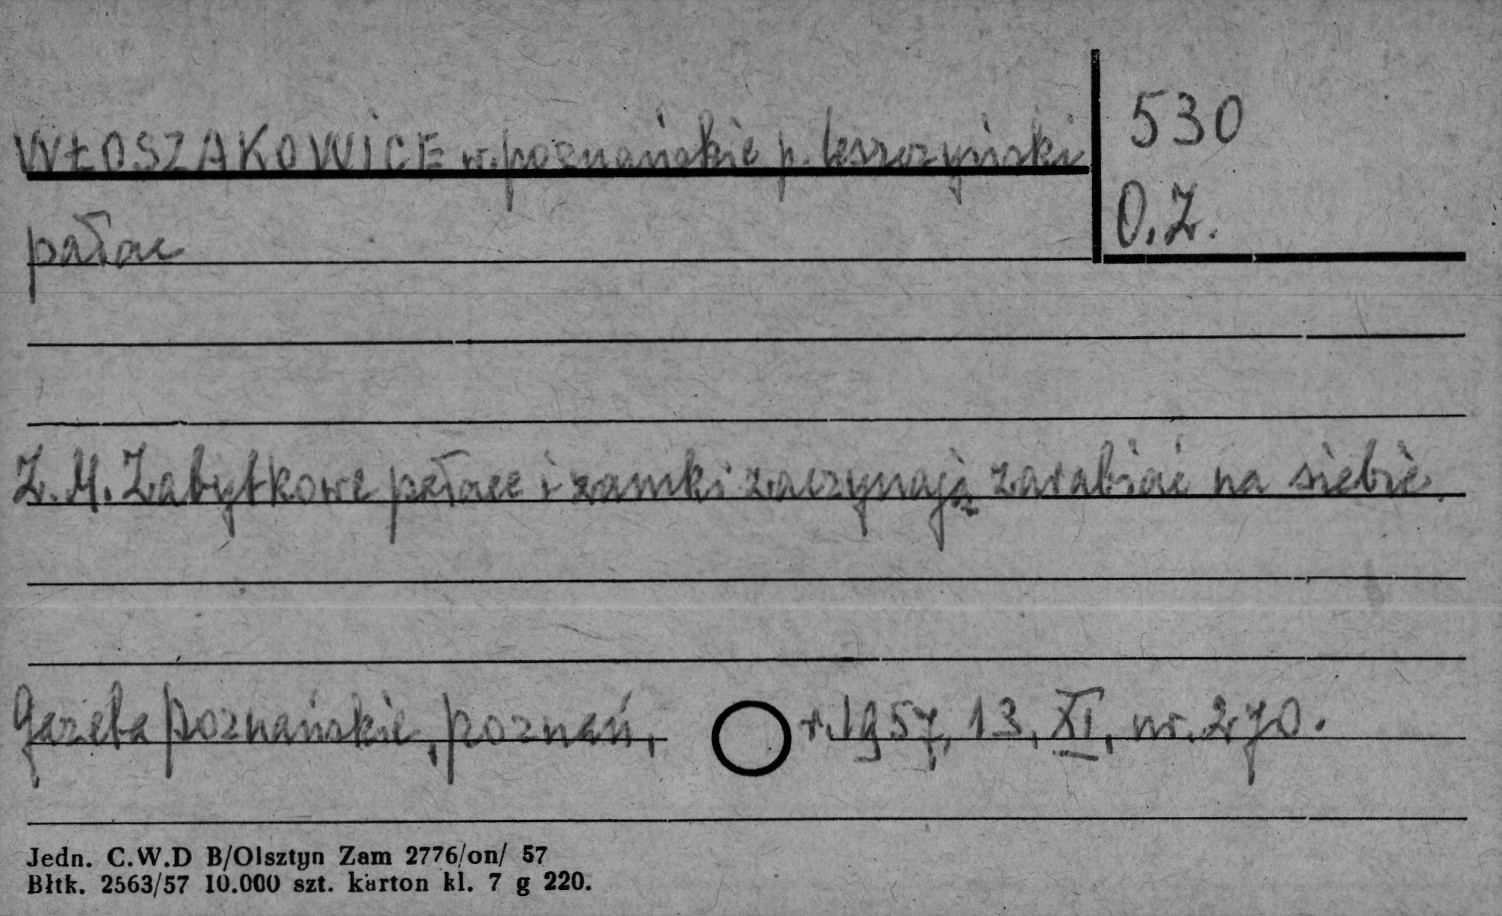 WŁOSZAKOWICE w. poznańskie p. leszczyński
530
O.Z.
pałac
Z.M. Zabytkowe pałace i zamki zaczynają zarabiać na siebie.
Gazeta Poznańskie, Poznań, r. 1957, 13, XI, nr. 270.
Jedn. C.W.D B/Olsztyn Zam 2776/on/ 57
Błtk. 2563/57 10.000 szt. karton kl. 7 g 220.